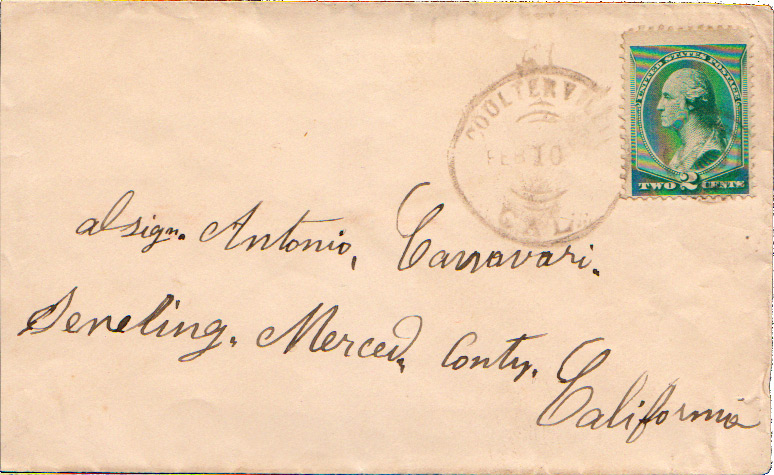 UNITED STATES POSTAGE
TWO 2 CENTS
COULTERVILLE
FEB 10
CAL
al sigr. Antonio, Canavari.
Seneling. Merced. Conty.
California